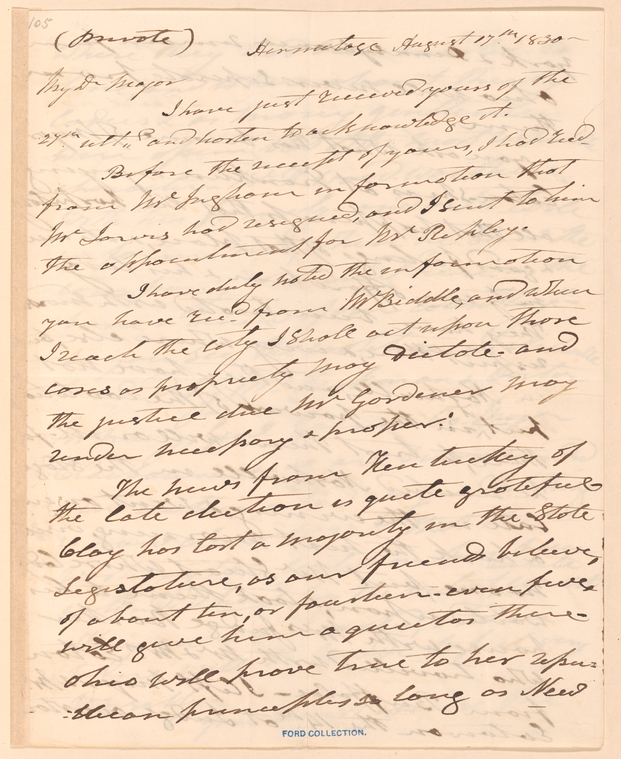 105
(Private)
Hermitage August 17th 1830—
My Dr Major
I have just received yours of the
27th ult. and hasten to acknowledge it.
Before the receipt of yours, I had recd.
from Mr Ingham information that
Mr Jarvis had resigned, and I sent to him
the appointment for Mr Ripley.
I have duly noted the information
you have recd. from Mr Biddle, and when
I reach the city I shall act upon those
cases as propriety may dictate- and
the justice due Mr Gardener may
render necessary & proper.
The news from Kentuckey of
the late election is quite grateful
Clay has lost a majority in the State
Legislature, as our friends believe,
of about ten, or fourteen- even five
will give him a quietus there-
ohio will prove true to her repu-
-blican principles so long as New
FORD COLLECTION.